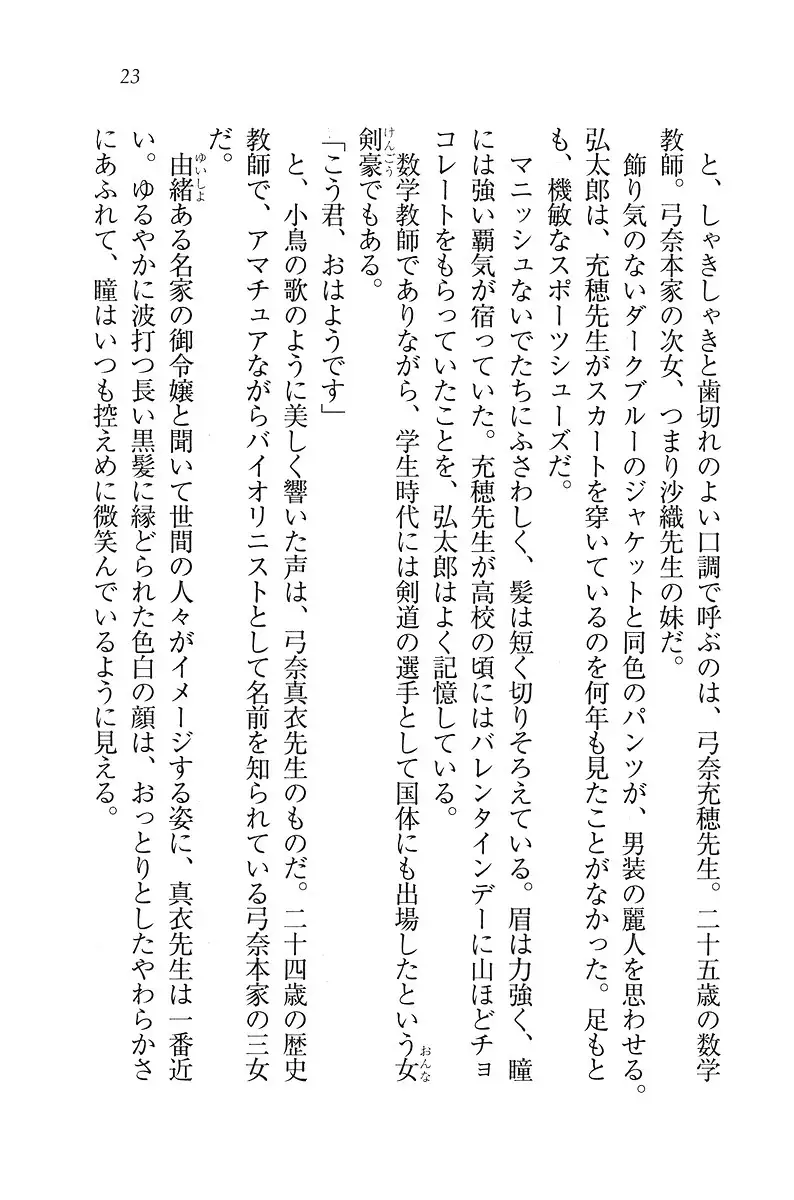 23
と、しゃきしゃきと歯切れのよい口調で呼ぶのは、弓奈充穂先生。二十五歳の数学
教師。弓奈本家の次女、つまり沙織先生の妹だ。
飾り気のないダークブルーのジャケットと同色のパンツが、男装の麗人を思わせる。
弘太郎は、充穂先生がスカートを穿いているのを何年も見たことがなかった。足もと
も、機敏なスポーツシューズだ。
マニッシュないでたちにふさわしく、髪は短く切りそろえている。眉は力強く、瞳
には強い覇気が宿っていた。充穂先生が高校の頃にはバレンタインデーに山ほどチョ
コレートをもらっていたことを、弘太郎はよく記憶している。
数学教師でありながら、学生時代には剣道の選手として国体にも出場したという女
おんな
剣豪でもある。
けんごう
「こう君、おはようです」
と、小鳥の歌のように美しく響いた声は、弓奈真衣先生のものだ。二十四歳の歴史
教師で、アマチュアながらバイオリニストとして名前を知られている弓奈本家の三女
だ。
由緒ある名家の御令嬢と聞いて世間の人々がイメージする姿に、真衣先生は一番近
ゆいしょ
い。ゆるやかに波打つ長い黒髪に縁どられた色白の顔は、おっとりとしたやわらかさ
にあふれて、瞳はいつも控えめに微笑んでいるように見える。